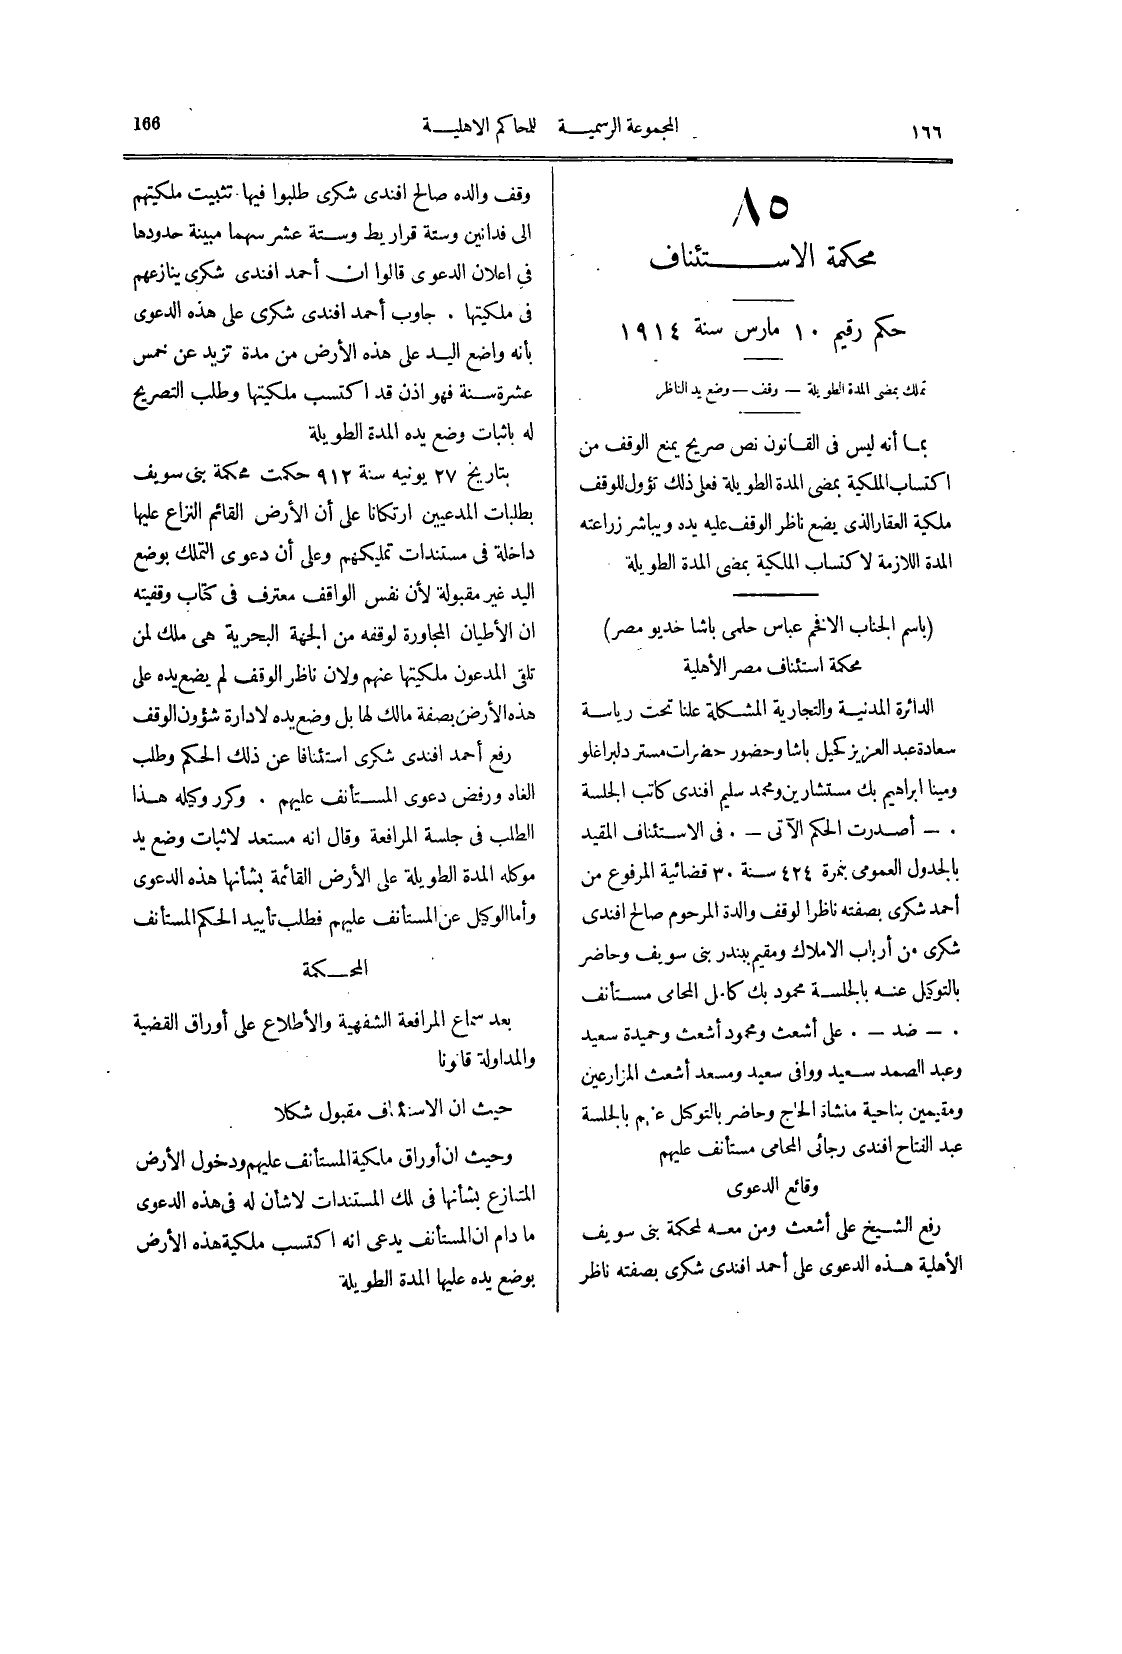 ١٦٦
المجموعة الرسمية للمحاكم الاهلية
166
٨٥
محكمة الاستئناف
حكم رقيم ١٠ مارس سنة ١٩١٤
تملك بمضى المدة الطويلة — وقف — وضع يد الناظر
بما أنه ليس فى القانون نص صريح يمنع الوقف من
اكتساب الملكية بمضى المدة الطويلة فعلى ذلك تؤول للوقف
ملكية العقار الذى يضع ناظر الوقف عليه يده ويباشر زراعته
المدة اللازمة لاكتساب الملكية بمضى المدة الطويلة
(باسم الجناب الافخم عباس حلمى باشا خديو مصر)
محكمة استئناف مصر الأهلية
الدائرة المدنية والتجارية المشكلة علنا تحت رياسة
سعادة عبد العزيز كحيل باشا وحضور حضرات مستر دلبراغلو
ومينا ابراهيم بك مستشارين ومحمد سليم افندى كاتب الجلسة
٠ — أصدرت الحكم الآتى — ٠ فى الاستئناف المقيد
بالجدول العمومى بنمرة ٤٢٤ سنة ٣٠ قضائية المرفوع من
أحمد شكرى بصفته ناظرا لوقف والدة المرحوم صالح افندى
شكرى من أرباب الاملاك ومقيم ببندر بنى سويف وحاضر
بالتوكيل عنه بالجلسة محمود بك كامل المحامى مستأنف
٠ — ضد — ٠ على أشعث ومحمود أشعث وحميدة سعيد
وعبد الصمد سعيد ووافى سعيد ومسعد أشعث المزارعين
ومقيمين بناحية منشاة الحاج وحاضر بالتوكل عنهم بالجلسة
عبد الفتاح افندى رجائى المحامى مستأنف عليهم
وقائع الدعوى
رفع الشيخ على أشعث ومن معه لمحكمة بنى سويف
الأهلية هذه الدعوى على أحمد افندى شكرى بصفته ناظر
وقف والده صالح افندى شكرى طلبوا فيها تثبيت ملكيتهم
الى فدانين وستة قراريط وستة عشر سهما مبينة حدودها
فى اعلان الدعوى قالوا ان أحمد افندى شكرى ينازعهم
فى ملكيتها . جاوب أحمد افندى شكرى على هذه الدعوى
بأنه واضع اليد على هذه الأرض من مدة تزيد عن خمس
عشرة سنة فهو اذن قد اكتسب ملكيتها وطلب التصريح
له باثبات وضع يده المدة الطويلة
بتاريخ ٢٧ يونيه سنة ٩١٢ حكمت محكمة بنى سويف
بطلبات المدعيين ارتكانا على أن الأرض القائم النزاع عليها
داخلة فى مستندات تمليكهم وعلى أن دعوى التملك بوضع
اليد غير مقبولة لأن نفس الواقف معترف فى كتاب وقفيته
ان الأطيان المجاورة لوقفه من الجهة البحرية هى ملك لمن
تلقى المدعون ملكيتها عنهم ولان ناظر الوقف لم يضع يده على
هذه الأرض بصفة مالك لها بل وضع يده لادارة شؤون الوقف
رفع أحمد افندى شكرى استئنافا عن ذلك الحكم وطلب
الغاه ورفض دعوى المستأنف عليهم . وكرر وكيله هذا
الطلب فى جلسة المرافعة وقال انه مستعد لاثبات وضع يد
موكله المدة الطويلة على الأرض القائمة بشأنها هذه الدعوى
وأما الوكيل عن المستأنف عليهم فطلب تأييد الحكم المستأنف
المحكمة
بعد سماع المرافعة الشفهية والأطلاع على أوراق القضية
والمداولة قانونا
حيث ان الاستئناف مقبول شكلا
وحيث ان أوراق ملكية المستأنف عليهم ودخول الأرض
المتنازع بشأنها فى تلك المستندات لاشأن له فى هذه الدعوى
ما دام ان المستأنف يدعى انه اكتسب ملكية هذه الأرض
بوضع يده عليها المدة الطويلة